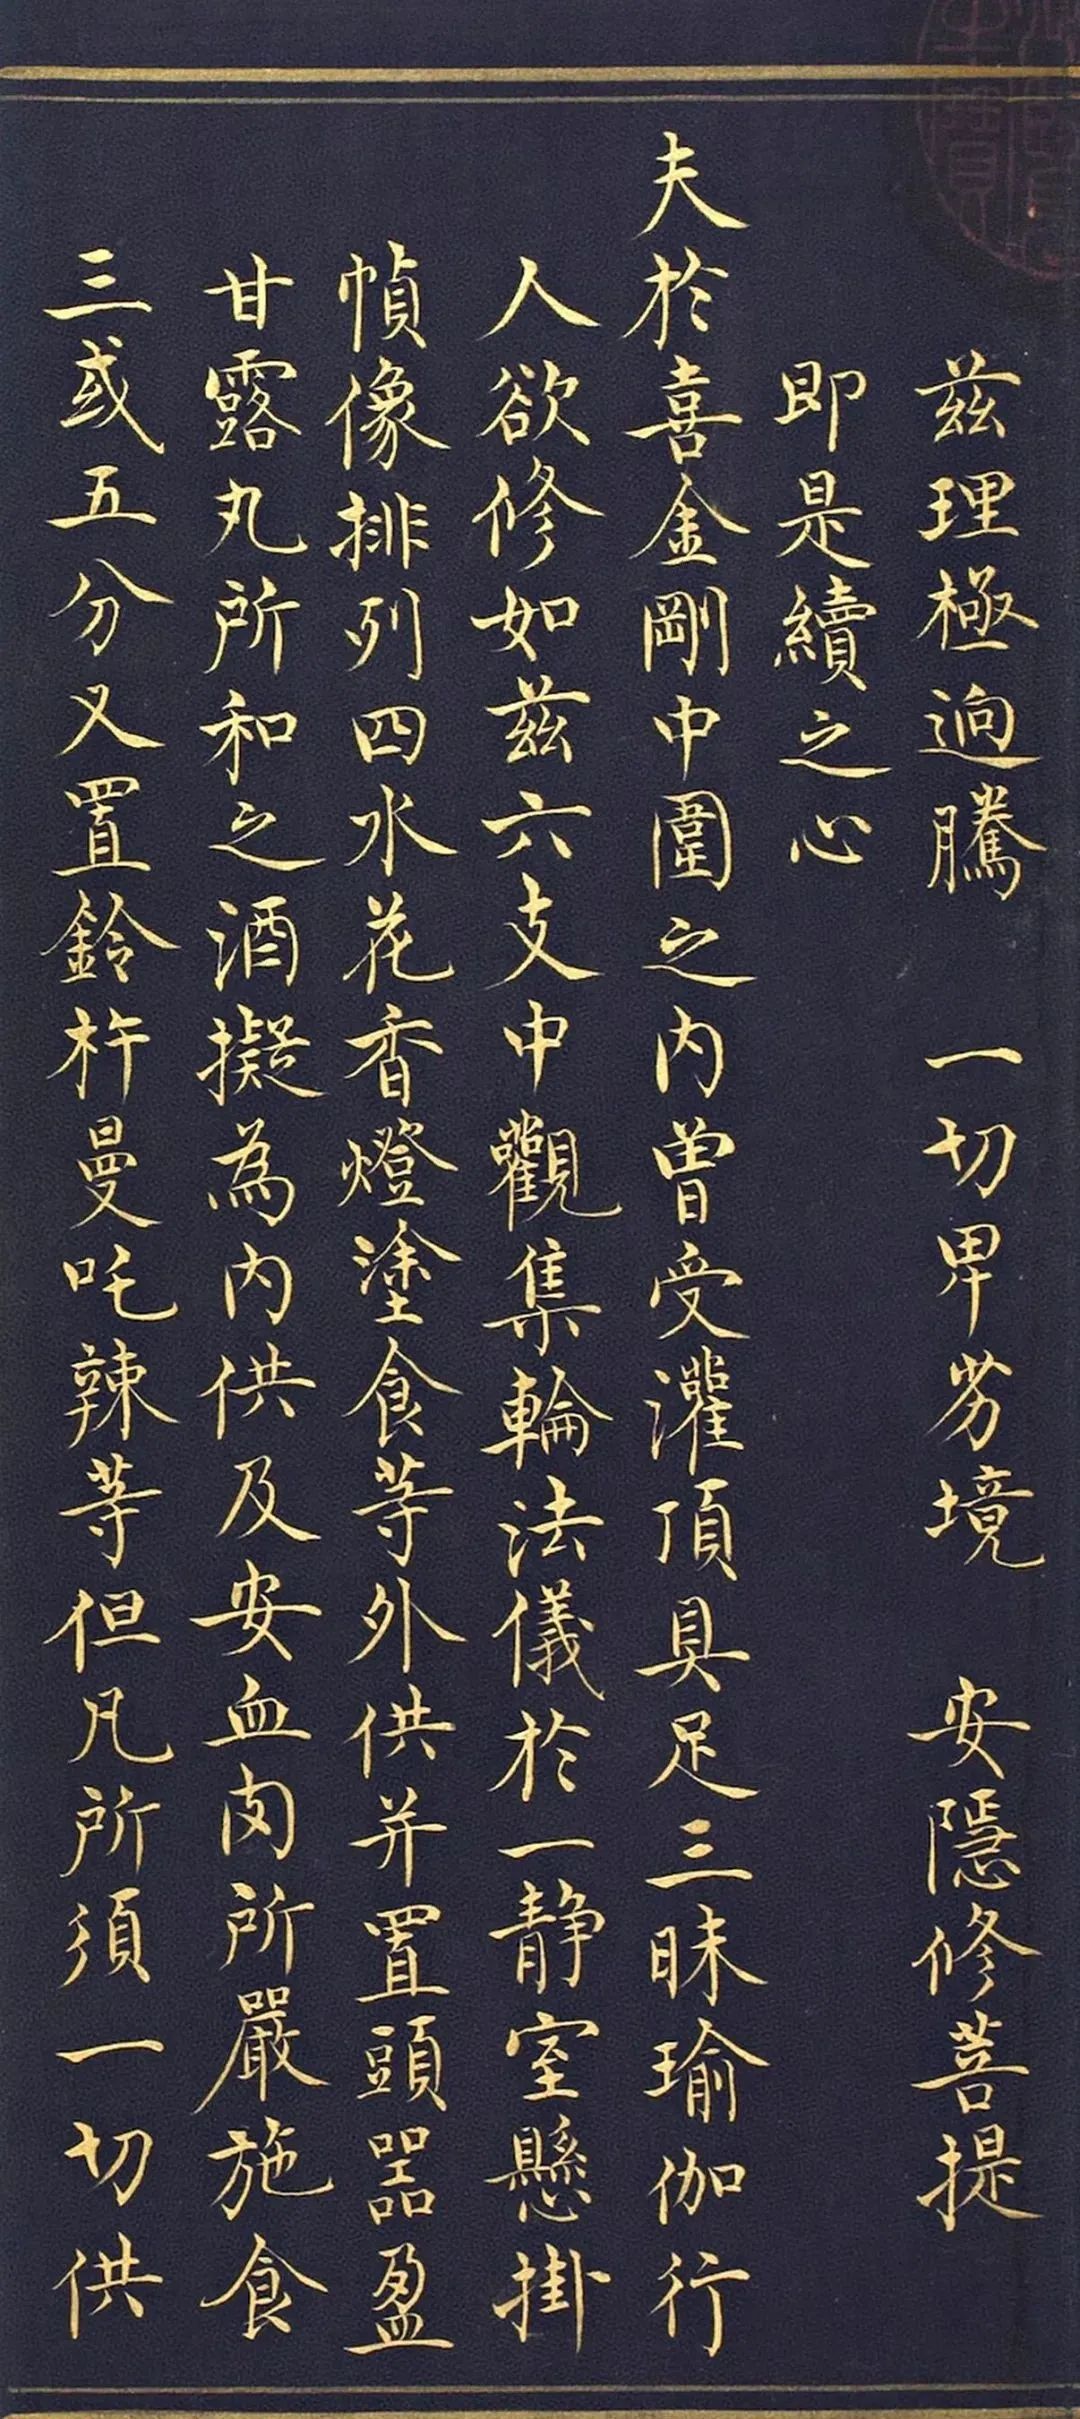 茲理極逈騰 一切卑劣境 安隱修菩提
即是續之心
夫於喜金剛中圍之内曾受灌頂具足三昧瑜伽行
人欲修如茲六支中觀集輪法儀於一靜室懸掛
幀像排列四水花香燈塗食等外供并置頭器盈
甘露丸所和之酒擬為内供及安血肉所嚴施食
三或五分又置鈴杵曼吒辣等但凡所須一切供